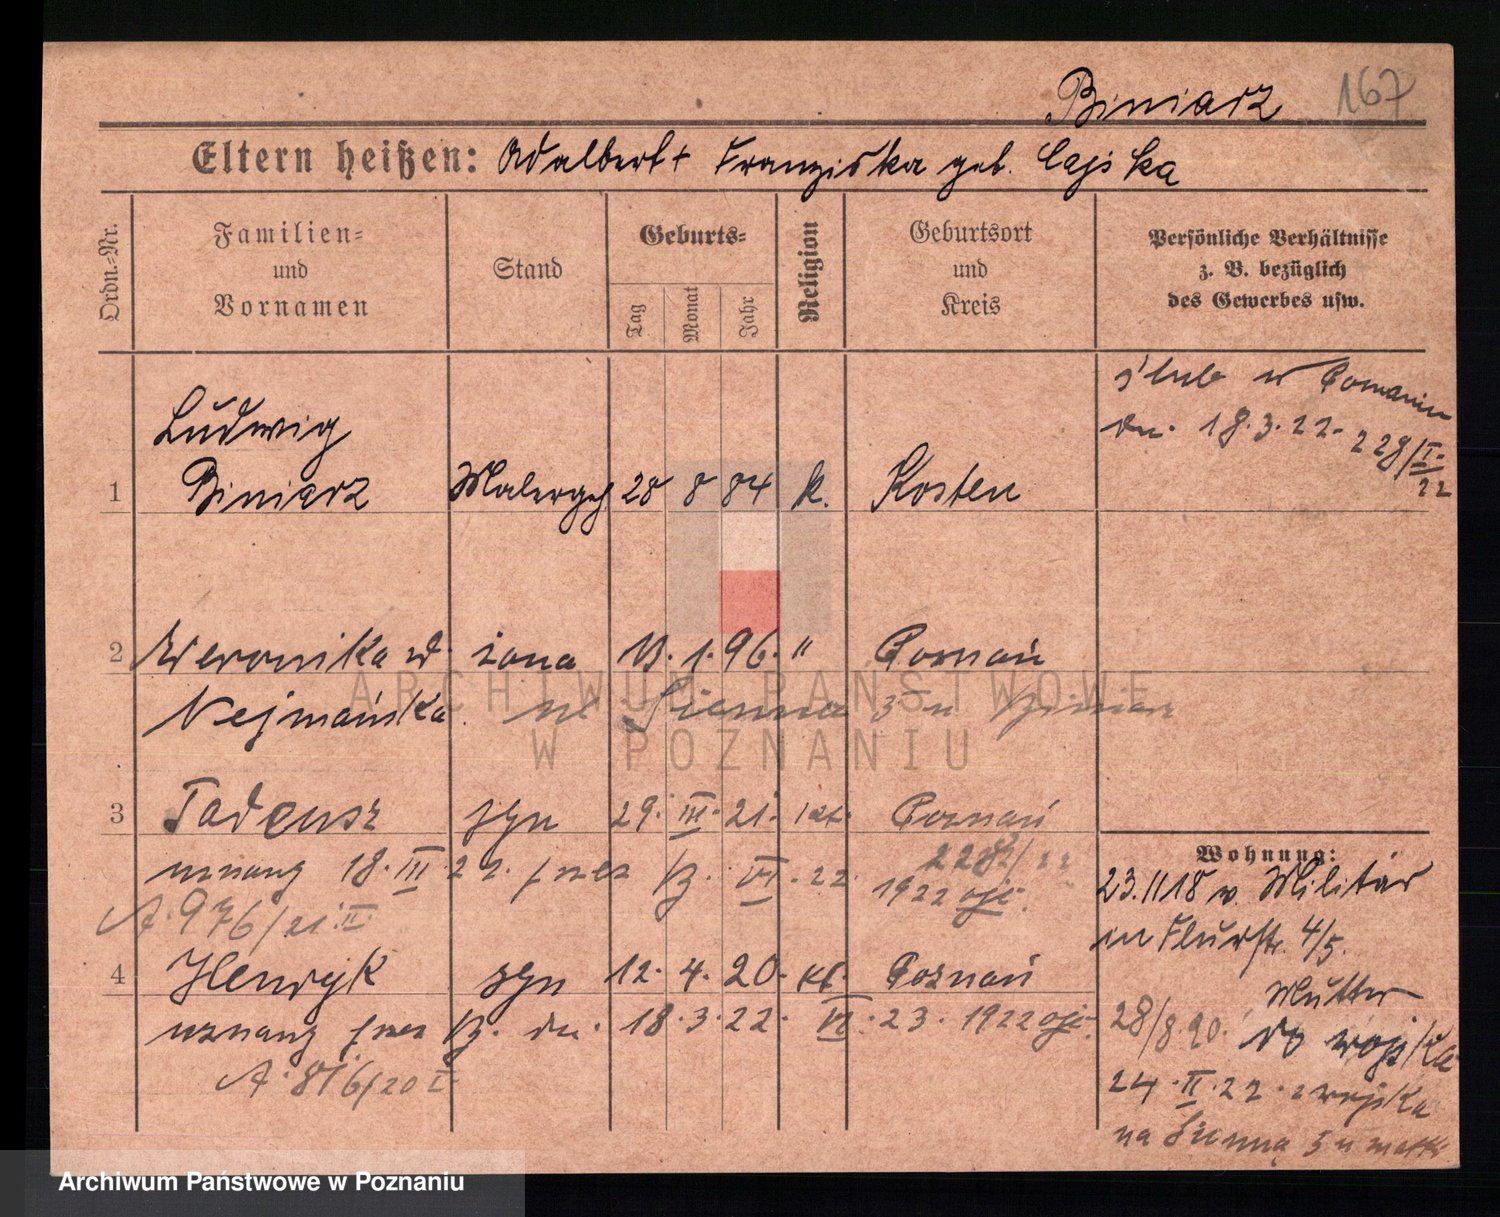 Biniarz 167
Eltern heißen: Adalbert + Franziska geb. Cajska
Ordn.-Nr.
Familien-
und
Vornamen
Stand
Geburts-
Tag
Monat
Jahr
Religion
Geburtsort
und
Kreis
Persönliche Verhältnisse
z. B. bezüglich
des Gewerbes usw.
ślub w Poznaniu
dn. 18.3.22. 228/I.
22
Ludwig
1 Biniarz Malergeh. 28 8 84 k. Kosten
2 Weronika z d. żona 13. 1. 96. " Poznań
Nejmańska
ARCHIWUM PAŃSTWOWE
W POZNANIU
3 Tadeusz syn 29. III. 21. kat. Poznań
uznany 18. III 22. przez VI. 22 228/22
1922
A. 976/21. II
4 Henryk syn 12. 4. 20. kt. Poznań
uznany przez dn. 18. 3. 22. VI. 23. 1922
A. 816/20 I
Wohnung:
23.11 18 v. Militär
in Flurstr. 4/5.
Mutter
28/8 20. do wojska
24. II. 22. z wojska
na Sienną 5 u matki
Archiwum Państwowe w Poznaniu